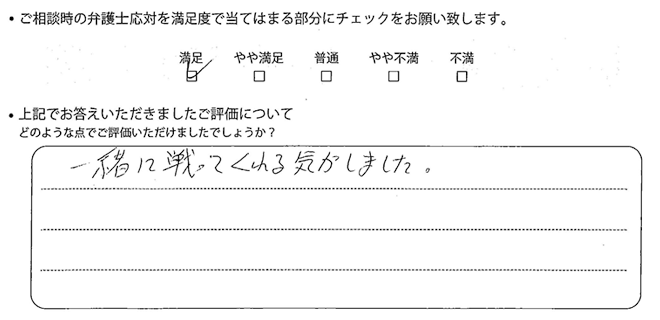 • ご相談時の弁護士応対を満足度で当てはまる部分にチェックをお願い致します。
満足 やや満足 普通 やや不満 不満
• 上記でお答えいただきましたご評価について
どのような点でご評価いただけましたでしょうか？
一緒に戦ってくれる気がしました。